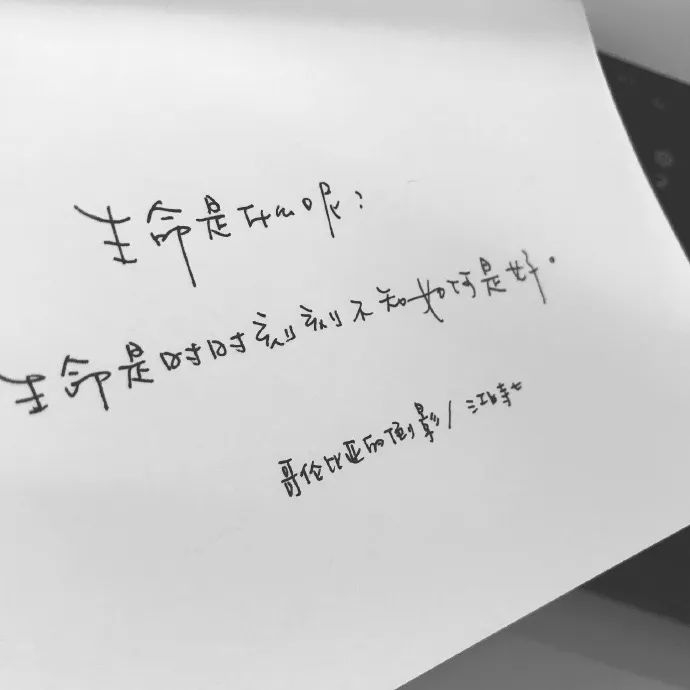 生命是什么呢：
生命是时时刻刻不知如何是好。
哥伦比亚的倒影/